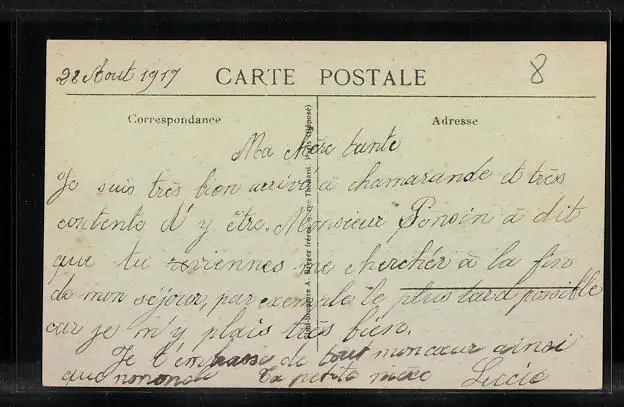 28 Aout 1917
CARTE POSTALE
8
Correspondance
Adresse
Ma chère tante
Je suis très bien arrivé à chamarande et très
contente d'y être. Monsieur Ponsin à dit
que tu viennes me cherchér à la fin
de mon séjour, par exemple le plus tard possible
car je m'y plais très bien.
Je t'embrasse de tout mon cœur ainsi
que nononcle Ta petite niece Lucie